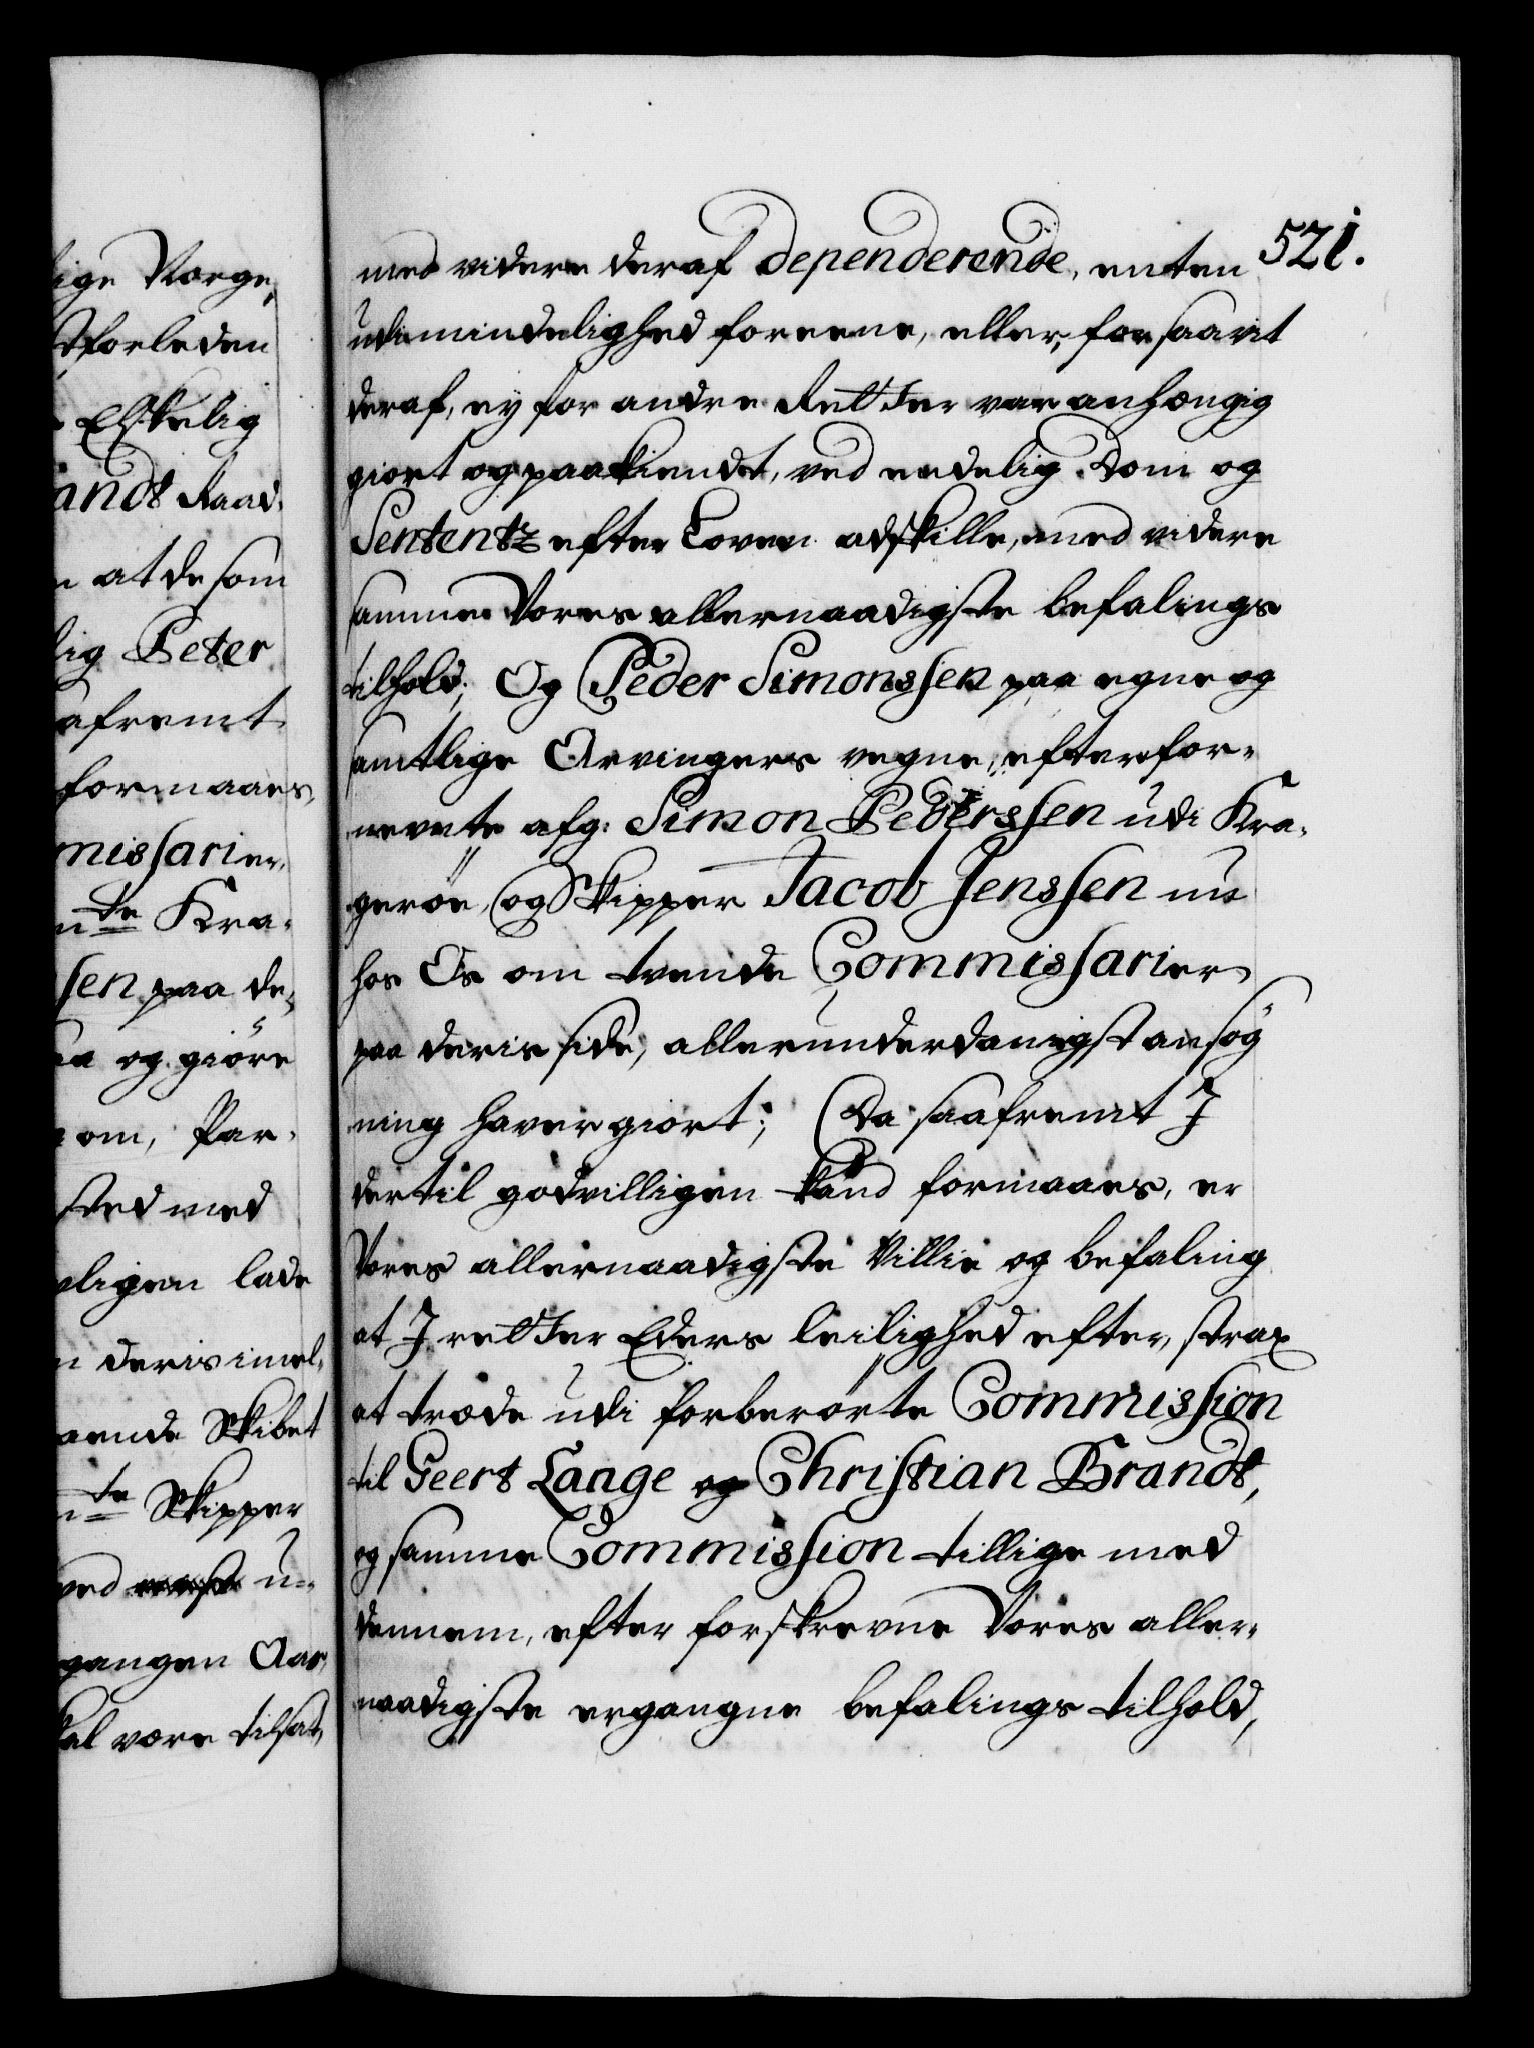 lige Norge,
dforleden
Elskelig
andt Raad
at de som
lig Peter
afremt
formaaes,
missarier,
nte Kra-
sen paa de-
aa og giöre
om, Par-
sted med
eligen lade
n deris imel-
aende Skibet
nte Skipper
ved u-
gangen Aar,
kal være tilsat,
521.
med videre deraf dependerende, enten
udi mindelighed foreene, eller, forsaavit
deraf, ey for andre Retter var anhængig
giort og paakiendt, ved endelig Dom og
Sententz efter Loven adskille, med videre
samme Vores allernaadigste befalings
tilhold; Og Peder Simonssen paa egne og
samtlige Arvingers vegne, efter for-
nevnte afg: Simon Pederssen udi Kra-
geröe, og Skipper Jacob Jenssen nu
hos Os om tvende Commissarier
paa deris side, allerunderdanigst ansög
ning haver giort; Da saafremt I
dertil godvilligen kand formaaes, er
Vores allernaadigste Villie og befaling
at I retter Eders leilighed efter, strax
at træde udi forberörte Commission
til Geert Lange og Christian Brandt,
og samme Commission tillige med
dennem, efter forskrevne Vores aller-
naadigste ergangne befalings tilhold,